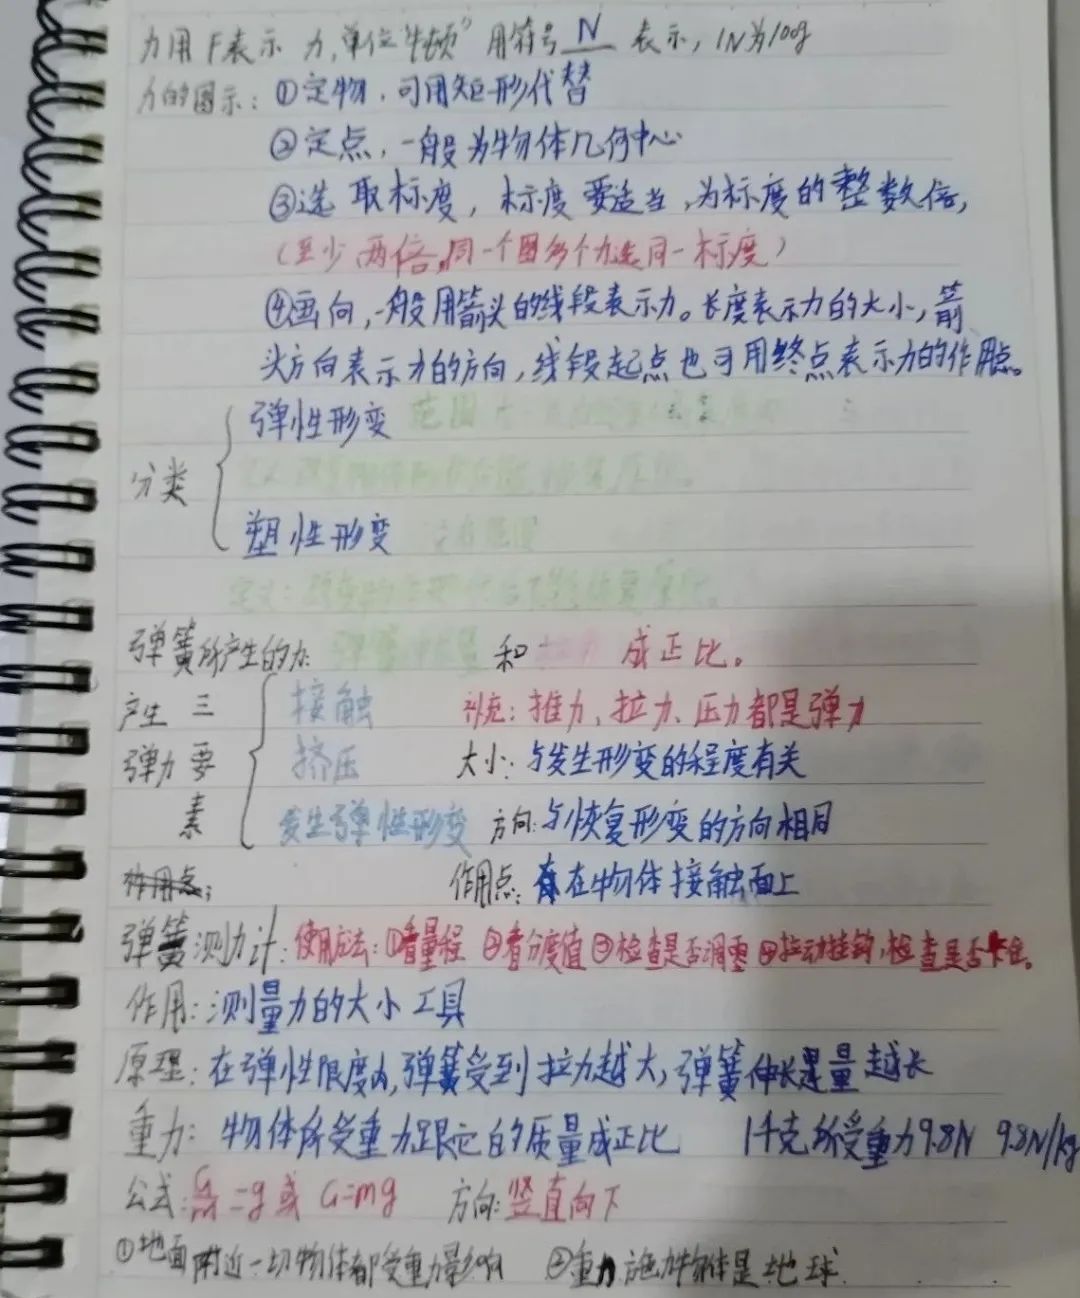 力用F表示 力,单位"牛顿"用符号 N 表示,1N为100g
力的图示:①定物,可用矩形代替
②定点,一般为物体几何中心
③选取标度,标度要适当,为标度的整数倍,
(至少两倍,同一个图多个力选同一标度)
④画向,一般用箭头的线段表示力。长度表示力的大小,箭
头方向表示力的方向,线段起点也可用终点表示力的作用点。
弹性形变 范围
分类
塑性形变
定义:
弹簧所产生的力: 弹簧伸长量 和 拉力 成正比。
产生 三 接触 补充:推力、拉力、压力都是弹力
弹力 要 挤压 大小:与发生形变的程度有关
素 发生弹性形变 方向:与恢复形变的方向相同
作用点: 作用点:在物体接触面上
弹簧测力计:使用方法:①看量程 ②看分度值 ③检查是否调零 ④拉动挂钩,检查是否卡住。
作用:测量力的大小工具
原理:在弹性限度内,弹簧受到拉力越大,弹簧伸长量越长
重力:物体所受重力跟它的质量成正比 1千克所受重力9.8N 9.8N/kg
公式:G/m=g或G=mg 方向:竖直向下
①地面附近一切物体都受重力影响 ②重力施力物体是地球.